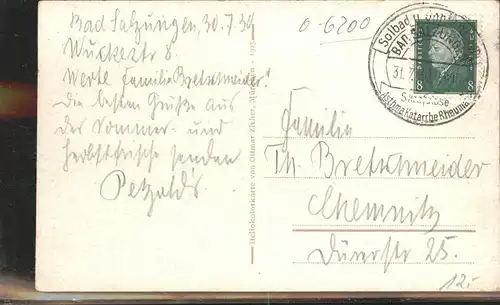 Bad Salzungen, 30.7.30
Wuckestr 8.
Werte Familie Bretschneider!
Die besten Grüße aus
der Sommer- und
Herbstfrische senden
Petzolds
Hellokolorkarte von Ottmar Zieher, München
0-6200
Solbad u.
BAD SALZUNGEN
31.7.
Skrofulose
Asthma Katarrhe Rheuma
8 8
Familie
Th. Bretschneider
Chemnitz
Dürerstr 25.
12.-